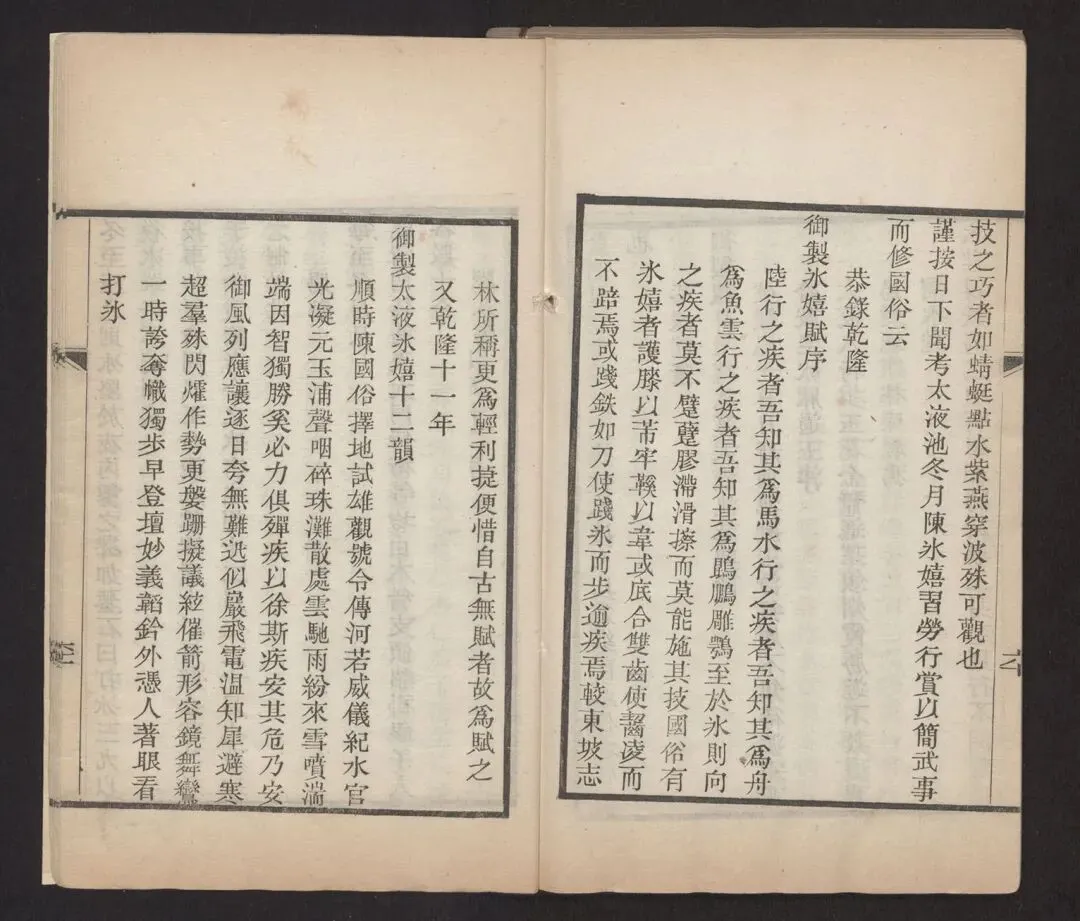 技之巧者如蜻蜓點水紫燕穿波殊可觀也
謹按日下聞考太液池冬月陳氷嬉習勞行賞以簡武事
而修國俗云
恭錄乾隆
御製氷嬉賦序
陸行之疾者吾知其爲馬水行之疾者吾知其爲舟
爲魚雲行之疾者吾知其爲鵾鵬雕鶚至於氷則向
之疾者莫不躄躠膠滯滑擦而莫能施其技國俗有
氷嬉者護膝以芾牢鞵以韋或底合雙齒使齧凌而
不踣焉或踐鉄如刀使踐氷而步逾疾焉較東坡志
林所稱更爲輕利捷便惜自古無賦者故爲賦之
又乾隆十一年
御製太液氷嬉十二韻
順時陳國俗擇地試雄觀號令傳河若威儀紀水官
光凝元玉浦聲咽碎珠灘散處雲馳雨紛來雪噴湍
端因智獨勝奚必力俱殫疾以徐斯疾安其危乃安
御風列應讓逐日夸無難迅似巖飛電温知犀避寒
超羣殊閃爍作勢更媻跚擬議絃催箭形容鏡舞鸞
一時誇奪幟獨步早登壇妙義韜鈐外憑人著眼看
打氷